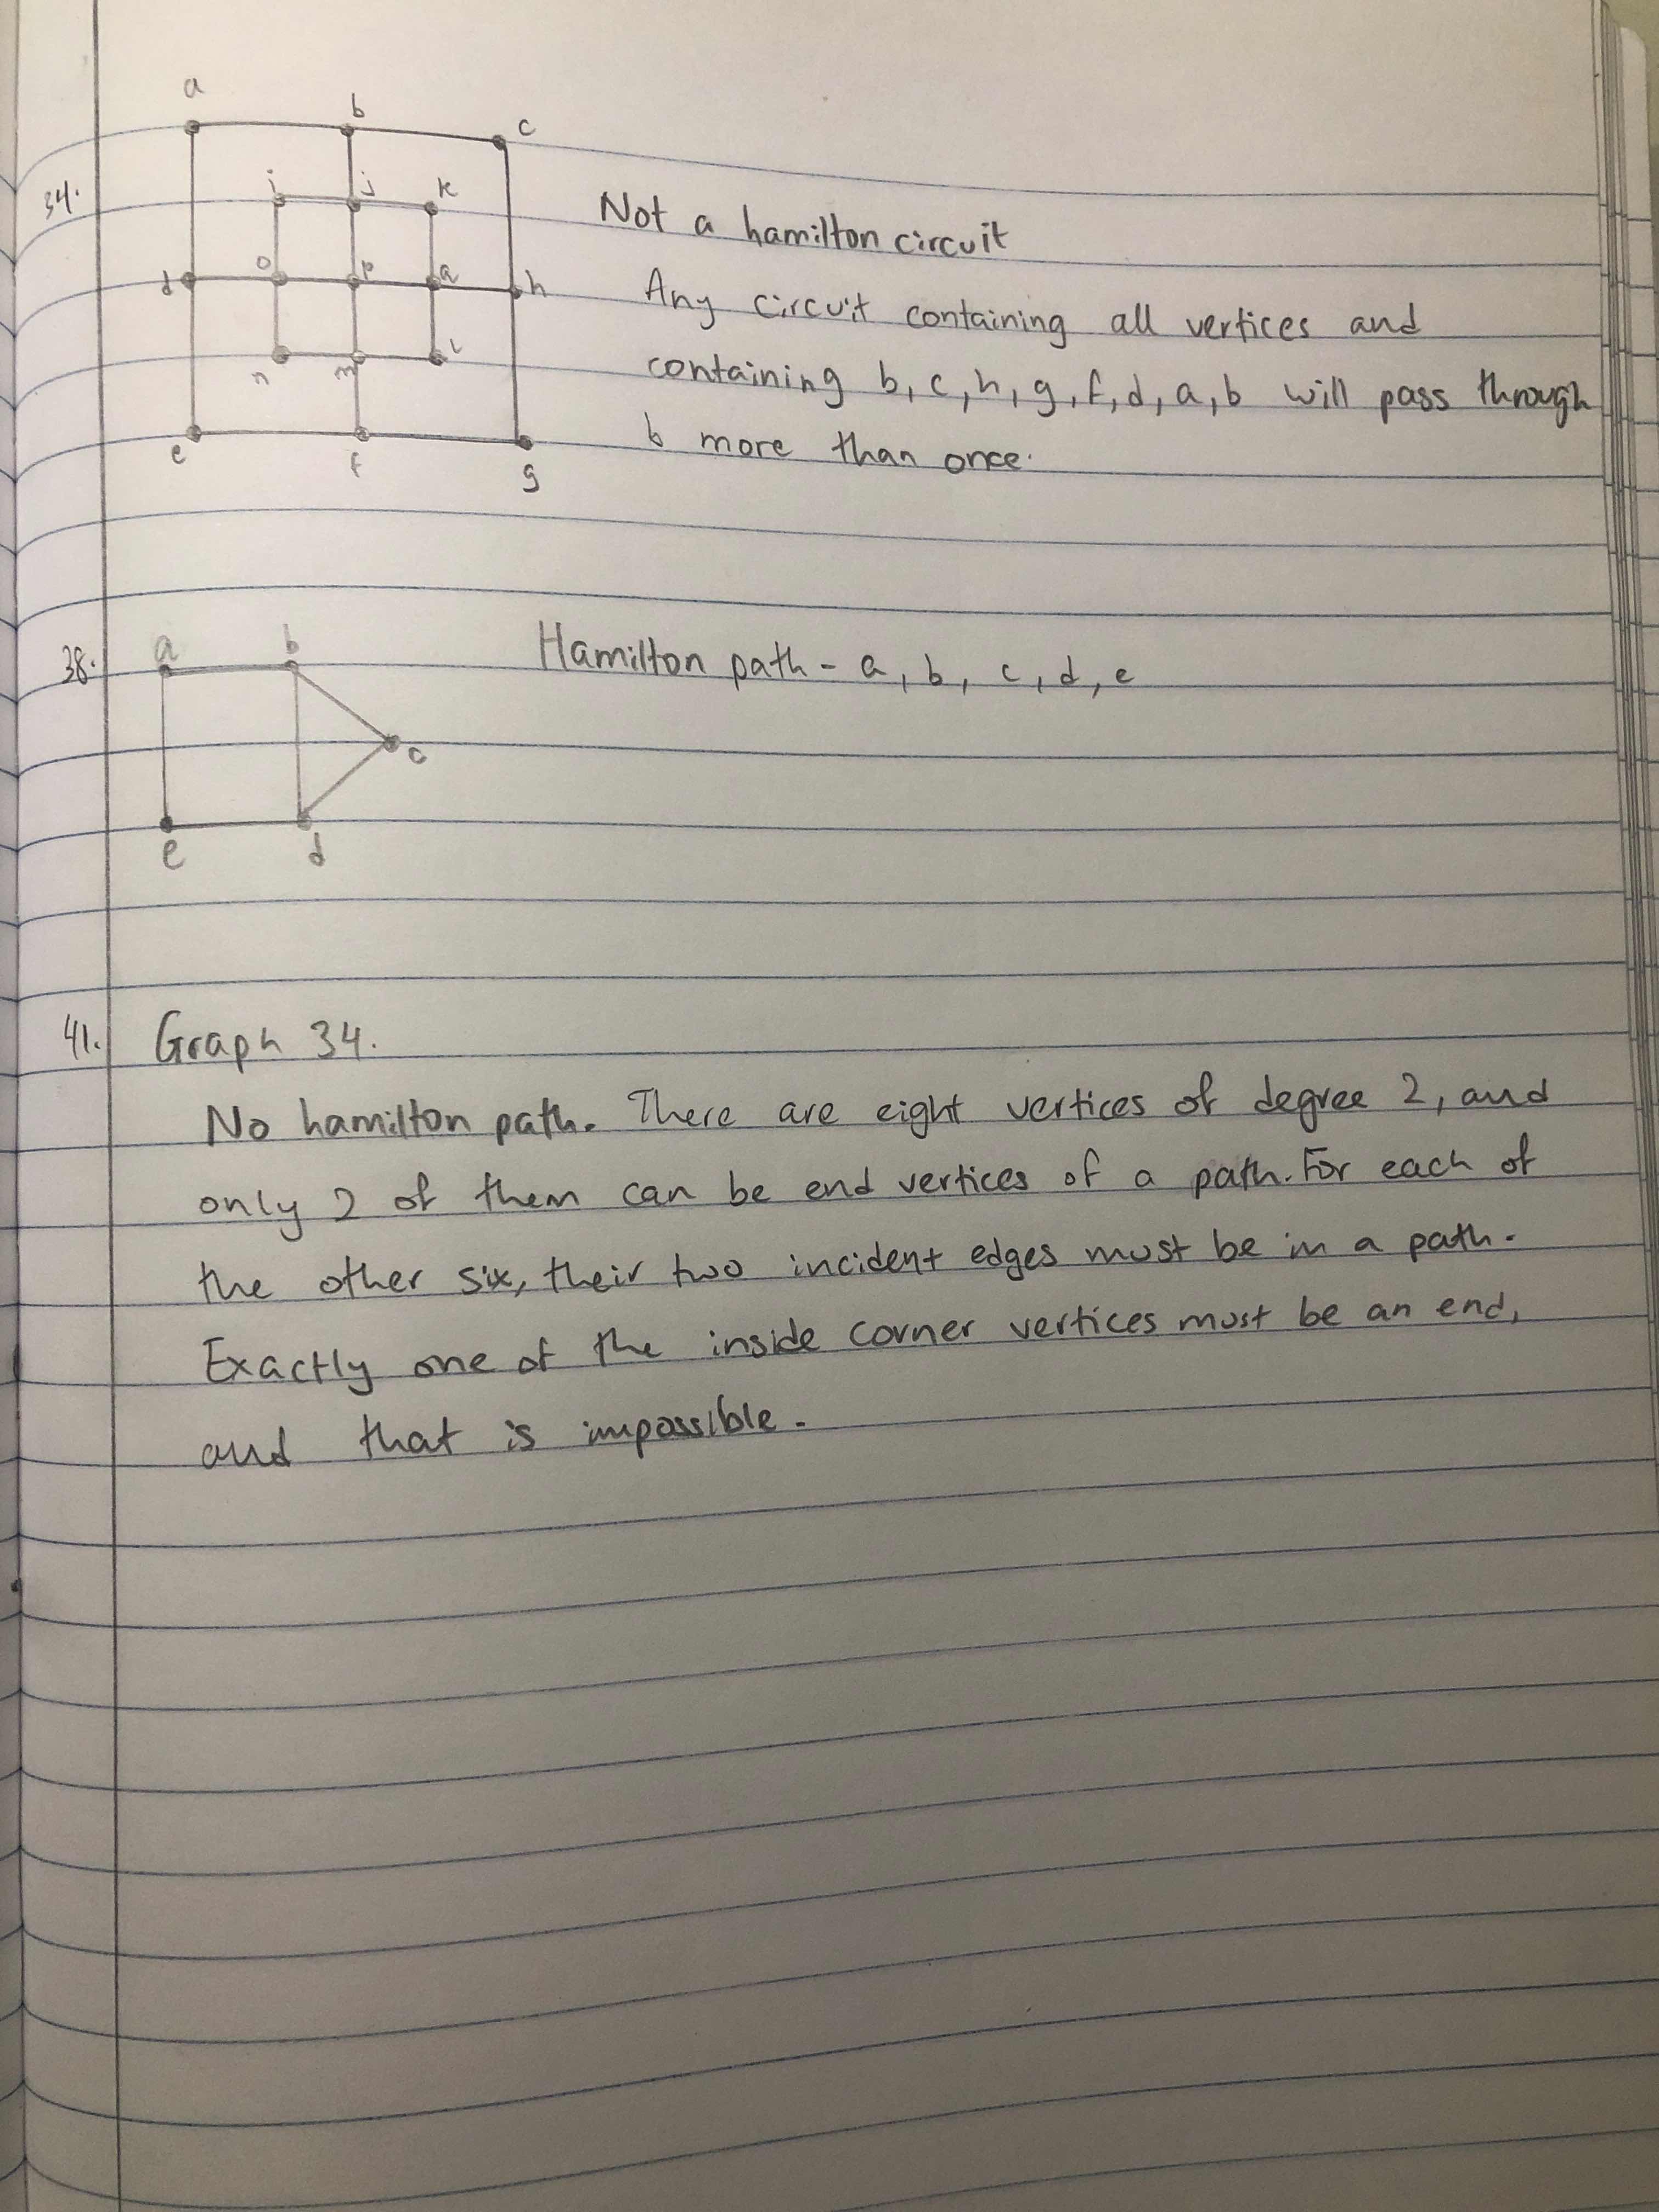 a
b
c
34.
i
j
k
Not a hamilton circuit
d
o
p
q
h
Any circuit containing all vertices and
n
m
l
containing b, c, h, g, f, d, a, b will pass through
b more than once.
e
f
g
38.
a
b
Hamilton path - a, b, c, d, e
c
e
d
41.
Graph 34.
No hamilton path. There are eight vertices of degree 2, and
only 2 of them can be end vertices of a path. For each of
the other six, their two incident edges must be in a path.
Exactly one of the inside corner vertices must be an end,
and that is impossible.